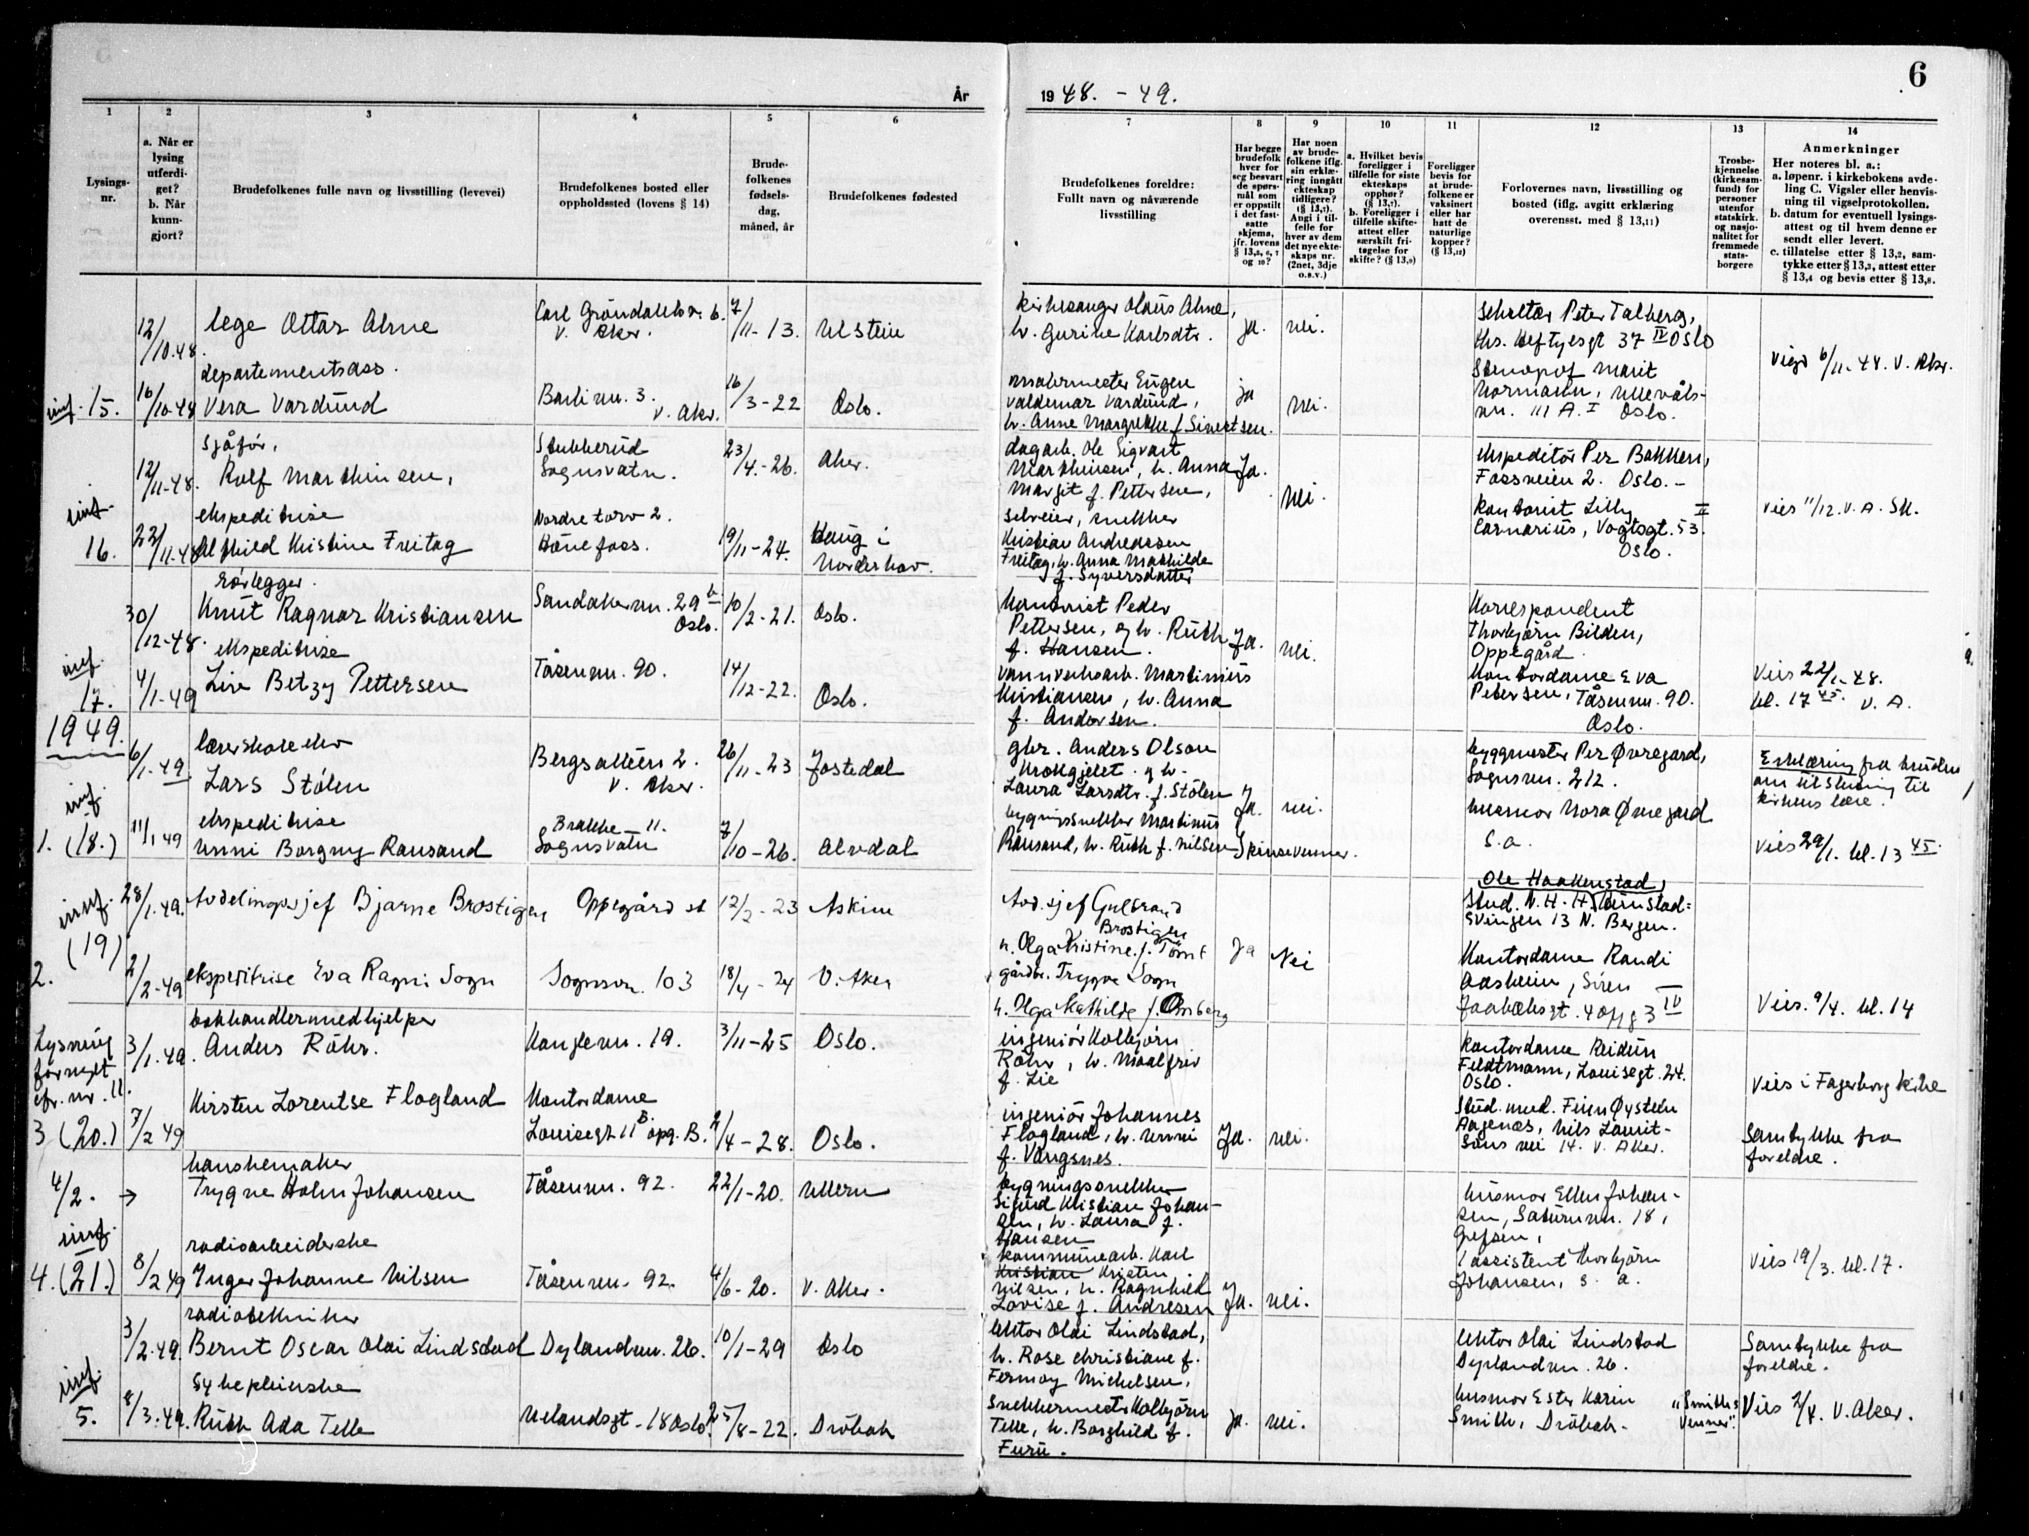 6
År
1948. - 49.
1
2
3
4
5
6
7
8
9
10
11
12
13
14
Lysings-
nr.
a. Når er
lysing
utferdi-
get?
b. Når
kunn-
gjort?
Brudefolkenes fulle navn og livsstilling (levevei)
Brudefolkenes bosted eller
oppholdssted (lovens § 14)
Brude-
folkenes
fødsels-
dag,
måned, år
Brudefolkenes fødested
Brudefolkenes foreldre:
Fullt navn og nåværende
livsstilling
Har begge
brudefolk
hver for
seg besvart
de spørs-
mål som
er oppstilt
i det fast-
satte
skjema,
jfr. lovens
Har noen
av brude-
folkene iflg.
sin erklæ-
ring inngått
ekteskap
tidligere?
(§ 13,7).
Angi i til-
felle for
hver av dem
det nye ekte-
skaps nr.
(2net, 3dje
o.s.v.)
a. Hvilket bevis
foreligger i
tilfelle for siste
ekteskaps
opphør?
(§ 13,7).
b. Foreligger i
tilfelle skifte-
attest eller
særskilt fri-
tagelse for
skifte? (§ 13,9)
Foreligger
bevis for
at brude-
folkene er
vaksinert
eller har
hatt de
naturlige
kopper?
(§ 13,12)
Forlovernes navn, livsstilling og
bosted (iflg. avgitt erklæring
overensst. med § 13,11)
Trosbe-
kjennelse
(kirkesam-
fund) for
personer
utenfor
statskirk.
og nasjo-
nalitet for
fremmede
stats-
borgere
Anmerkninger
Her noteres bl. a.:
a. løpenr. i kirkebokens avde-
ling C. Vigsler eller henvis-
ning til vigselprotokollen.
b. datum for eventuell lysings-
attest og til hvem denne er
sendt eller levert.
c. tillatelse etter § 13,2, sam-
tykke etter § 13,3, attest etter
§ 13,4 og bevis etter § 13,8.
12/10.48. lege Ottar Alme
v. Aker. 7/11-13. Ulstein
kirkesanger Olaus Alme,
h. Gurine Karlsdtr. ja. nei.
Peter Talberg,
Ths. Heftyesgt 37 IV Oslo
Vigd 6/11-48. V. Aker.
15. 16/10-48 departementsass.
Vera Vardund
3. v. Aker. 16/3-22 Oslo.
malermester Eugen
Valdemar Vardund,
h. Anne Margrethe f. Sivertsen. ja nei.
Marit
Normann, Ullevåls-
vn. 111 A. I Oslo.
12/11-48. sjåfør,
Rolf Marthinsen,
Stubberud
Sognsvatn. 23/4.-26. Aker.
dagarb. Ole Sigvart
Marthinsen, h. Anna
Margit f. Pettersen, Ja. nei.
ekspeditør Per Bakken,
Fossveien 2. Oslo.-
16. 22/11-48 ekspeditrise
Alfhild Kristine Freitag
Nordre torv 2.
Hønefoss. 19/11-24. Haug i
Norderhov.
selveier, snekker
Kristian Andreassen
Freitag, h. Anna Mathilde
f. Syversdatter
kontorist Lilly
Carnarius, Vogtsgt. 53. II
Oslo.
Vies 11/12. V. A. Sk.
30/12-48. rørlegger.
Knut Ragnar Kristiansen
Sandakervn. 29 b
Oslo. 10/2-21. Oslo.
Kontorist Peder
Pettersen, og h. Ruth
f. Hansen. Ja. nei.
Korrespondent
Thorbjørn Bilden,
Oppegård.
17. 4/1-49 ekspeditrise
Liv Betzy Pettersen
Tåsenvn. 90. 14/12-22. Oslo.
vannverksarb. Martinius
Kristiansen, h. Anna
f. Andersen.
Kontordame Eva
Petersen, Tåsenvn. 90.
Oslo.
Vies 22/1-48.
kl. 17 45. V. A.
1949.
6/1-49 lærerskoleelev
Lars Stølen
Bergsalleen 2.
v. Aker. 26/11-23 Jostedal
gbr. Anders Olson
Krokgjelet. og h.
Laura Larsdtr. f. Stølen Ja. nei.
byggmester Per Øvregard,
Sognsvn. 212.
Erklæring fra bruden
om tilslutning til
kirkens lære.
1. (18.) 11/1 49 ekspeditrise
Unni Borgny Ransand
Brakke 11.
Sognsvatn 7/10-26. Alvdal
bygningssnekker Martinus
Ransand, h. Ruth f. Nilsen
husmor Nora Øvregard
s.a.
Vies 29/1. kl. 13 45.
28/1-49. Avdelingssjef Bjarne Brostigen
Oppegård st 12/2-23 Askim
Avd. sjef Gulbrand
Brostigen
h. Olga Kristine f. Tomt Ja Nei
Ole Haakenstad,
Stud. N.H.H.
13 N. Bergen.
2. (19) 2/2-49 ekspeditrise Eva Ragni Sogn
Sognsvn. 103 18/4-24 V. Aker
gårdbr. Trygve Sogn
h. Olga Mathilde f.
Kontordame Randi
Aasheim, Siren
Jaabæksgt. 4 oppg 3 IV
Vies. 9/4. kl. 14
Lysning
fornyet
cfr. nr. 11.
3/1-49. bokhandlermedhjelper
Anders Röhr.
Konglevn. 19. 3/11-25 Oslo.
ingeniør Kolbjørn
Röhr, h. Maalfrid
f. Lie
Kontordame Reidun
Feldtmann, Louisegt. 24.
Oslo.
Vies i Fagerborg kirke
3 (20.) 7/2 49 Kirsten Lorentse Flogland
Kontordame
Louisegt 11 B opg. B. 2/4-28. Oslo.
ingeniør Johannes
Flogland, h. Unni
f. Vangsnes. Ja. nei.
Stud. med. Finn Øystein
Aagenæs, Nils Laurit-
søns vei 14. V. Aker.
Samtykke fra
foreldre.
4/2. → hanskemaker
Trygve Holm Johansen
Tåsenvn. 92. 22/1-20. Ullern
bygningssnekker
Sigurd Kristian Johan-
sen, h. Laura f.
Hansen
husmor Ellen Johan-
sen, Saturnvn. 18,
Grefsen,
4. (21.) 8/2 49 radioarbeiderske
Inger Johanne Nilsen
Tåsenvn. 92. 4/6-20. V. Aker.
kommunearb. Karl
Kristian Kristen
Nilsen, h. Ragnhild
Lovise f. Andresen Ja. nei.
assistent Thorbjørn
Johansen, s. a.
Vies 19/3. kl. 17.
3/2-49. radiotekniker
Bernt Oscar Olai Lindstad
Dylandvn. 26. 10/1-29 Oslo
lektor Olai Lindstad,
h. Rose Christiane f.
Fermoy Michelsen,
lektor Olai Lindstad
Dylandvn. 26.
Samtykke fra
foreldre.
5. 8/3-49. sykepleierske
Ruth Ada Telle
Uelandsgt. 18 Oslo. 25/8-22. Drøbak
snekkermester Kolbjørn
Telle, h. Borghild f.
Furu. Ja. nei.
husmor Ester Karin
Smith, Drøbak.
"Smiths
Venner".
Vies 2/4. V. Aker.